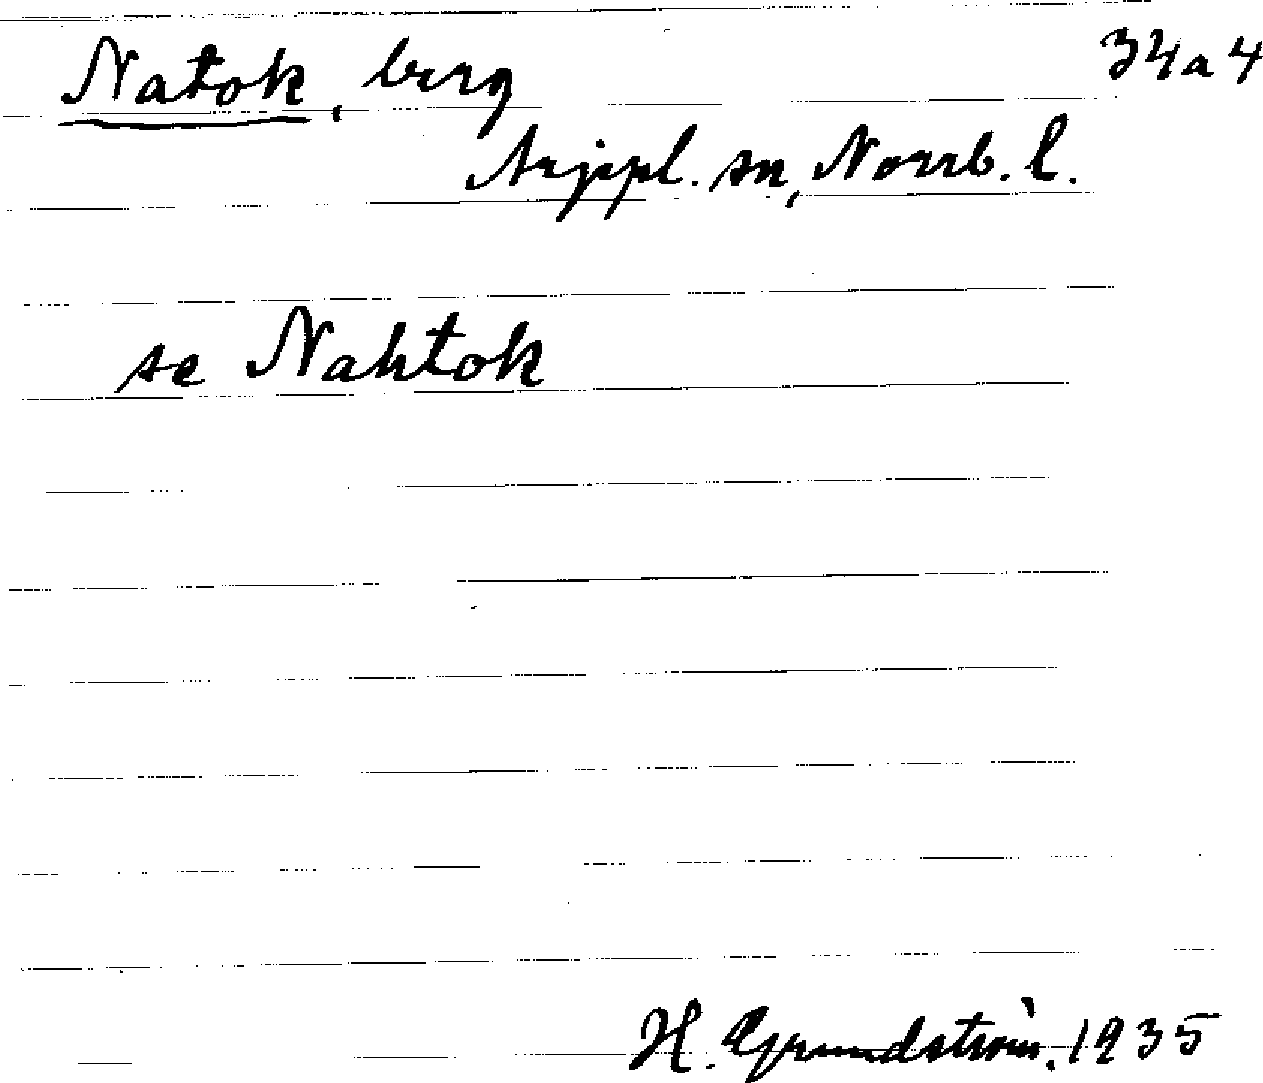 Natok, berg 34a4
Arjepl. sn, Norrb. l.
se Nahtok
H. Grundström. 1935